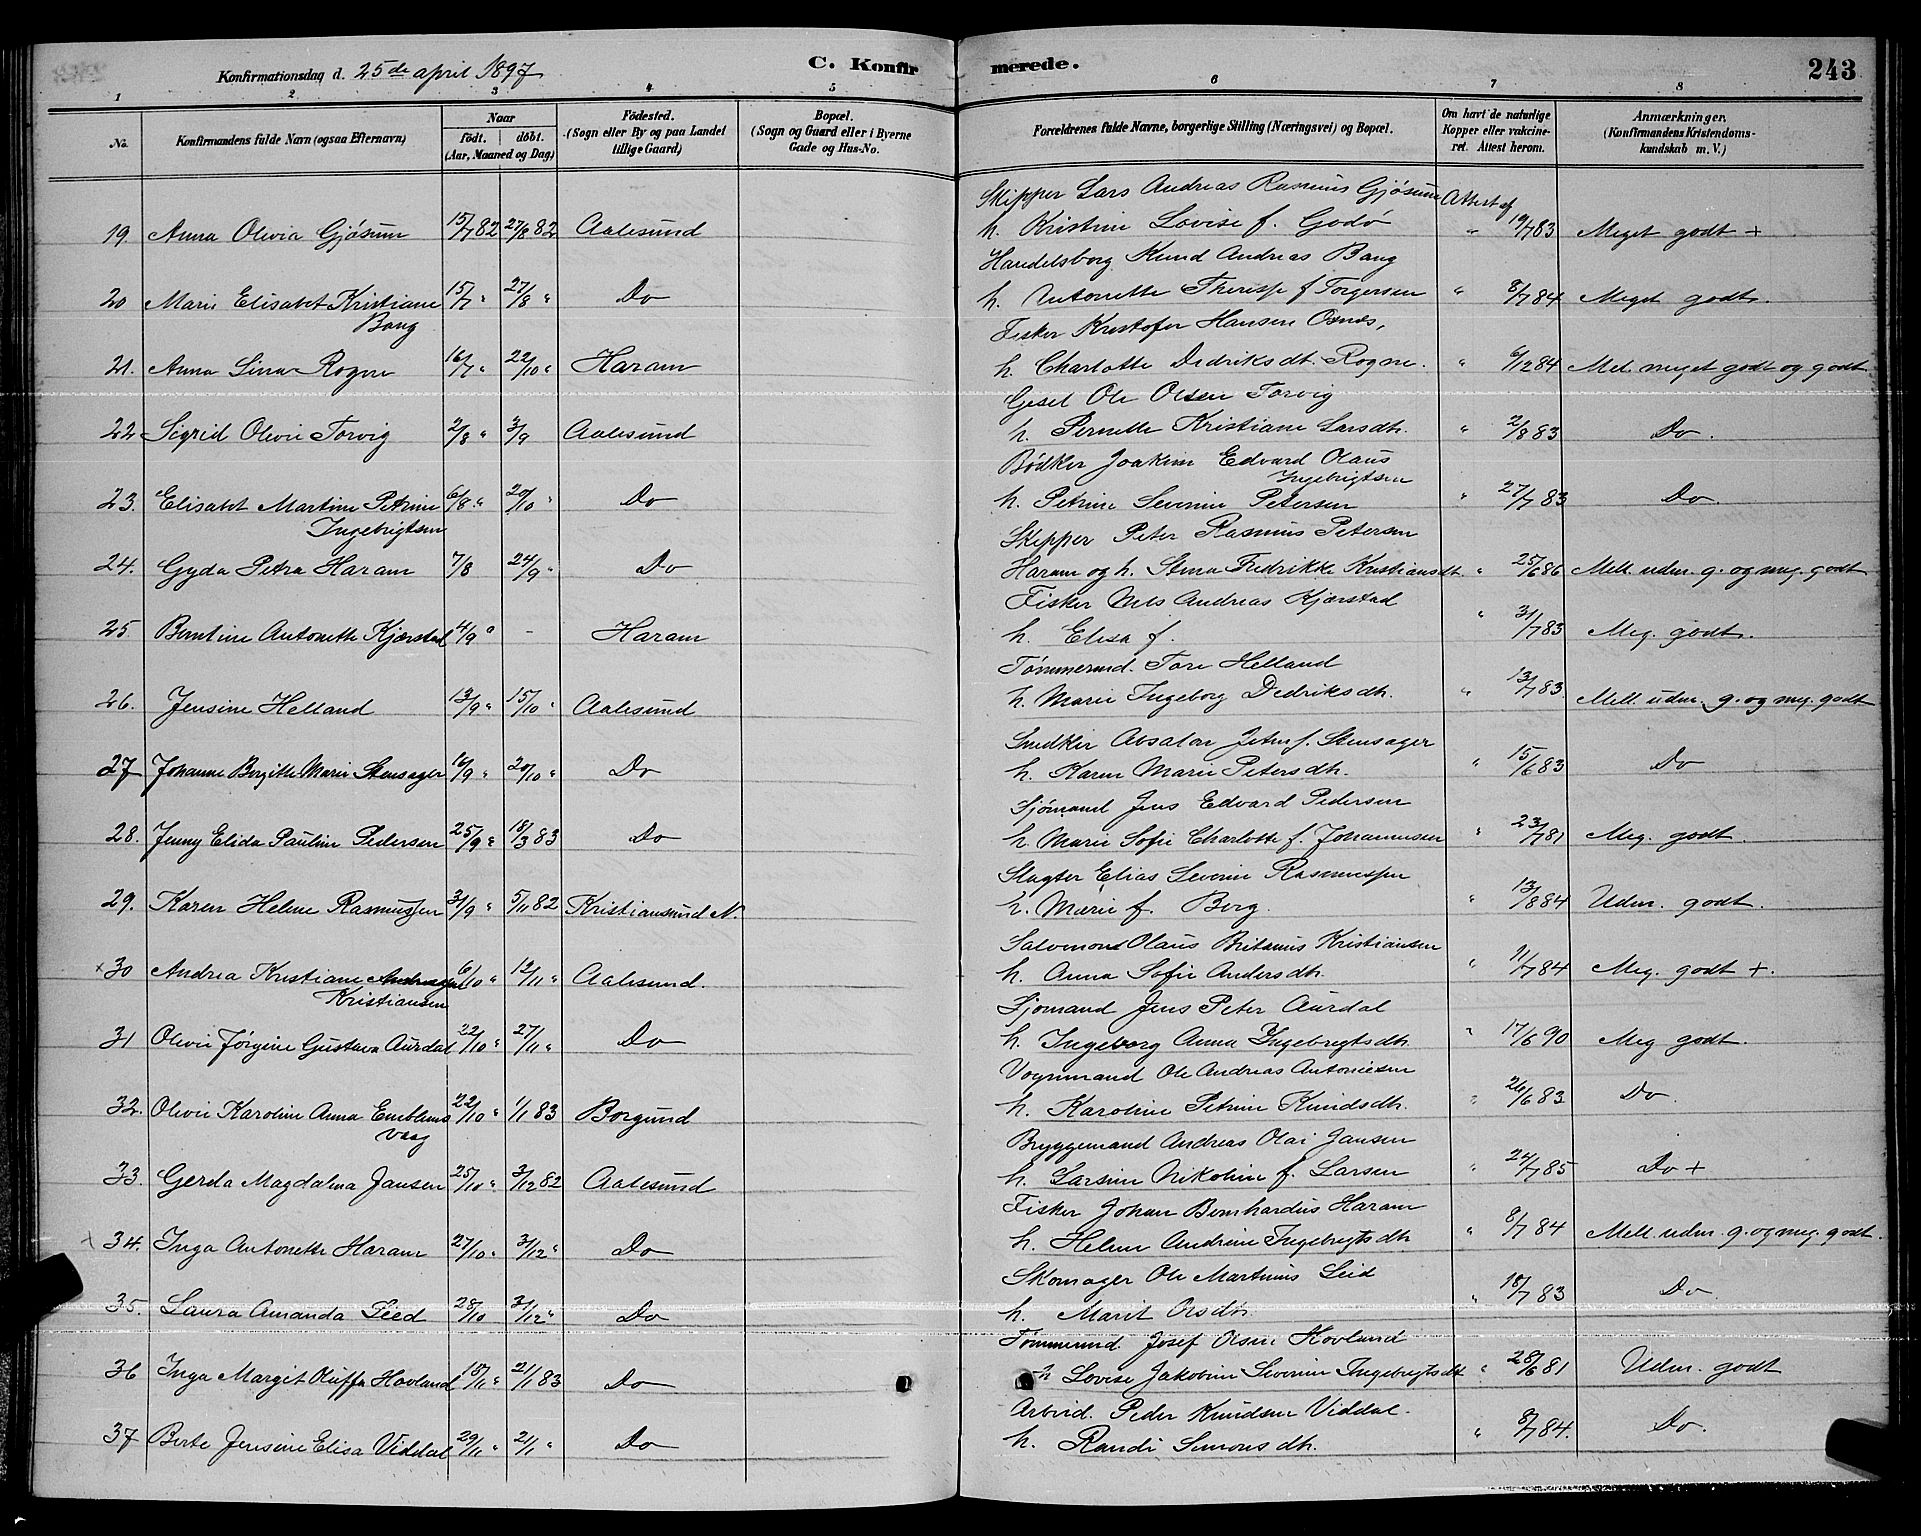 Konfirmationsdag d. 25de april 1897
C. Konfirmerede.
243
1 2 3 4 5 6 7 8
No.
Konfirmandens fulde Navn (ogsaa Efternavn)
Naar
født. døbt.
(Aar, Maaned og Dag)
Fødested.
(Sogn eller By og paa Landet
tillige Gaard)
Bopæl.
(Sogn og Gaard eller i Byerne
Gade og Hus-No.
Forældrenes fulde Navne, borgerlige Stilling (Næringsvei) og Bopæl.
Om havt de naturlige
Kopper eller vakcine-
ret. Attest herom.
Anmærkninger.
(Konfirmandens Kristendoms-
kundskab m. V.)
Skipper Lars Andreas Rasmus Gjøsund Attest af
19. Anna Olivia Gjøsum 15/7 82 27/8 82 Aalesund h. Kristine Lovise f. Godø " 19/7 83 Meget godt +
Handelsborg. Knud Andreas Bang
20 Marie Elisabet Kristiane 15/7 " 27/8 " Do h. Antonette Therese f Torgersen " 8/7 84 Meget godt.
Bang
Fisker Kristofer Hansen Oxnes,
21. Anna Sina Rogne 16/7 " 22/10 " Haram h. Charlotte Dedriksdt. Rogne. " 6/12 84 Mel. meget godt og godt
Gesel Ole Olsen Torvig
22 Sigrid Olivie Torvig 2/8 " 3/9 Aalesund h. Pernette Kristiane Larsdtr. " 2/8 83 Do.
Bødker Joakim Edvard Olaus
Ingebrigtsen
23. Elisabet Martine Petrine 6/8 " 20/10 " Do h. Petrine Severine Petersen " 27/7 83 Do
Ingebrigtsen
Skipper Peter Rasmus Petersen
24. Gyda Petra Haram 7/8 24/9 " Do Haram og h. Stina Fredrikke Kristiansdt. " 25/6 86 Mell. udm. g. og meg. godt
Fisker Nils Andreas Kjærstad
25. Berntine Antonette Kjærstad 4/9 " - Haram h. Elisa f. " 31/7 83 Meg. godt.
Tømmermd. Tore Helland
26. Jensine Helland 13/9 " 15/10 " Aalesund h. Marie Ingeborg Dedriksdtr. " 13/7 83 Mell. udm. g. og meg. godt
Snedker Absalon Stensager
27 Johanne Birgitte Marie Stensager 16/9 " 20/10 " Do h. Karen Marie Petersdtr. " 15/6 83 Do
Sjømand Jens Edvard Pedersen
28. Jenny Elida Pauline Pedersen 25/9 " 18/3 83 Do h. Marie Sofie Charlotte f. Johannessen " 23/7 81 Meg. godt.
Slagter Elias Severin Rasmussen
29. Karen Helene Rasmussen 31/9 " 5/11 82 Kristiansund N. h. Marie f. Berg. " 13/8 84 Udm. godt.
Salomon Olaus Britanus Kristiansen
x 30 Andrea Kristiane 6/10 " 12/11 " Aalesund. h. Anna Sofie Andersdtr. " 11/7 84 Meg. godt +.
Kristiansen
Sjømand Jens Peter Aurdal
31 Olivie Jørgine Gustava Aurdal 22/10 " 27/11 " Do h. Ingeborg Anna Ingebrigtsdtr. " 17/6 90 Meg godt.
Vognmand Ole Andreas Antoniesen
32. Olivie Karoline Anna Emblems 22/10 " 1/1 83 Borgund h. Karoline Petrine Knudsdtr. " 26/6 83 Do.
vaag
Bryggemand Andreas Olai Jansen
33. Gerda Magdalena Jansen 25/10 " 3/12 82 Aalesund h. Larsine Nikoline f. Larsen " 24/7 85 Do +
Fisker Johan Bernhardus Haram
x 34. Inga Antonette Haram 27/10 " 3/12 " Do h. Helene Andrine Ingebrigtsdtr " 8/7 84 Mell. udm. g. og meg. godt.
Skomager Ole Martinus Leid
35. Laura Amanda Leed 28/10 31/12 " Do h. Marit Olsdtr. " 18/7 83 Do.
Tømmermd. Josef Olsen Hovland
36 Inga Margit Ruffa Hovland 18/11 " 2/1 83 Do h Lovise Jakobine Severine Ingebrigtsdt " 28/6 81 Udm. godt
Arbeid. Peder Knudsen Viddal.
37 Berte Jensine Elisa Viddal 29/11 " 2/1 " Do h. Randi Simonsdtr. " 8/7 84. Do.